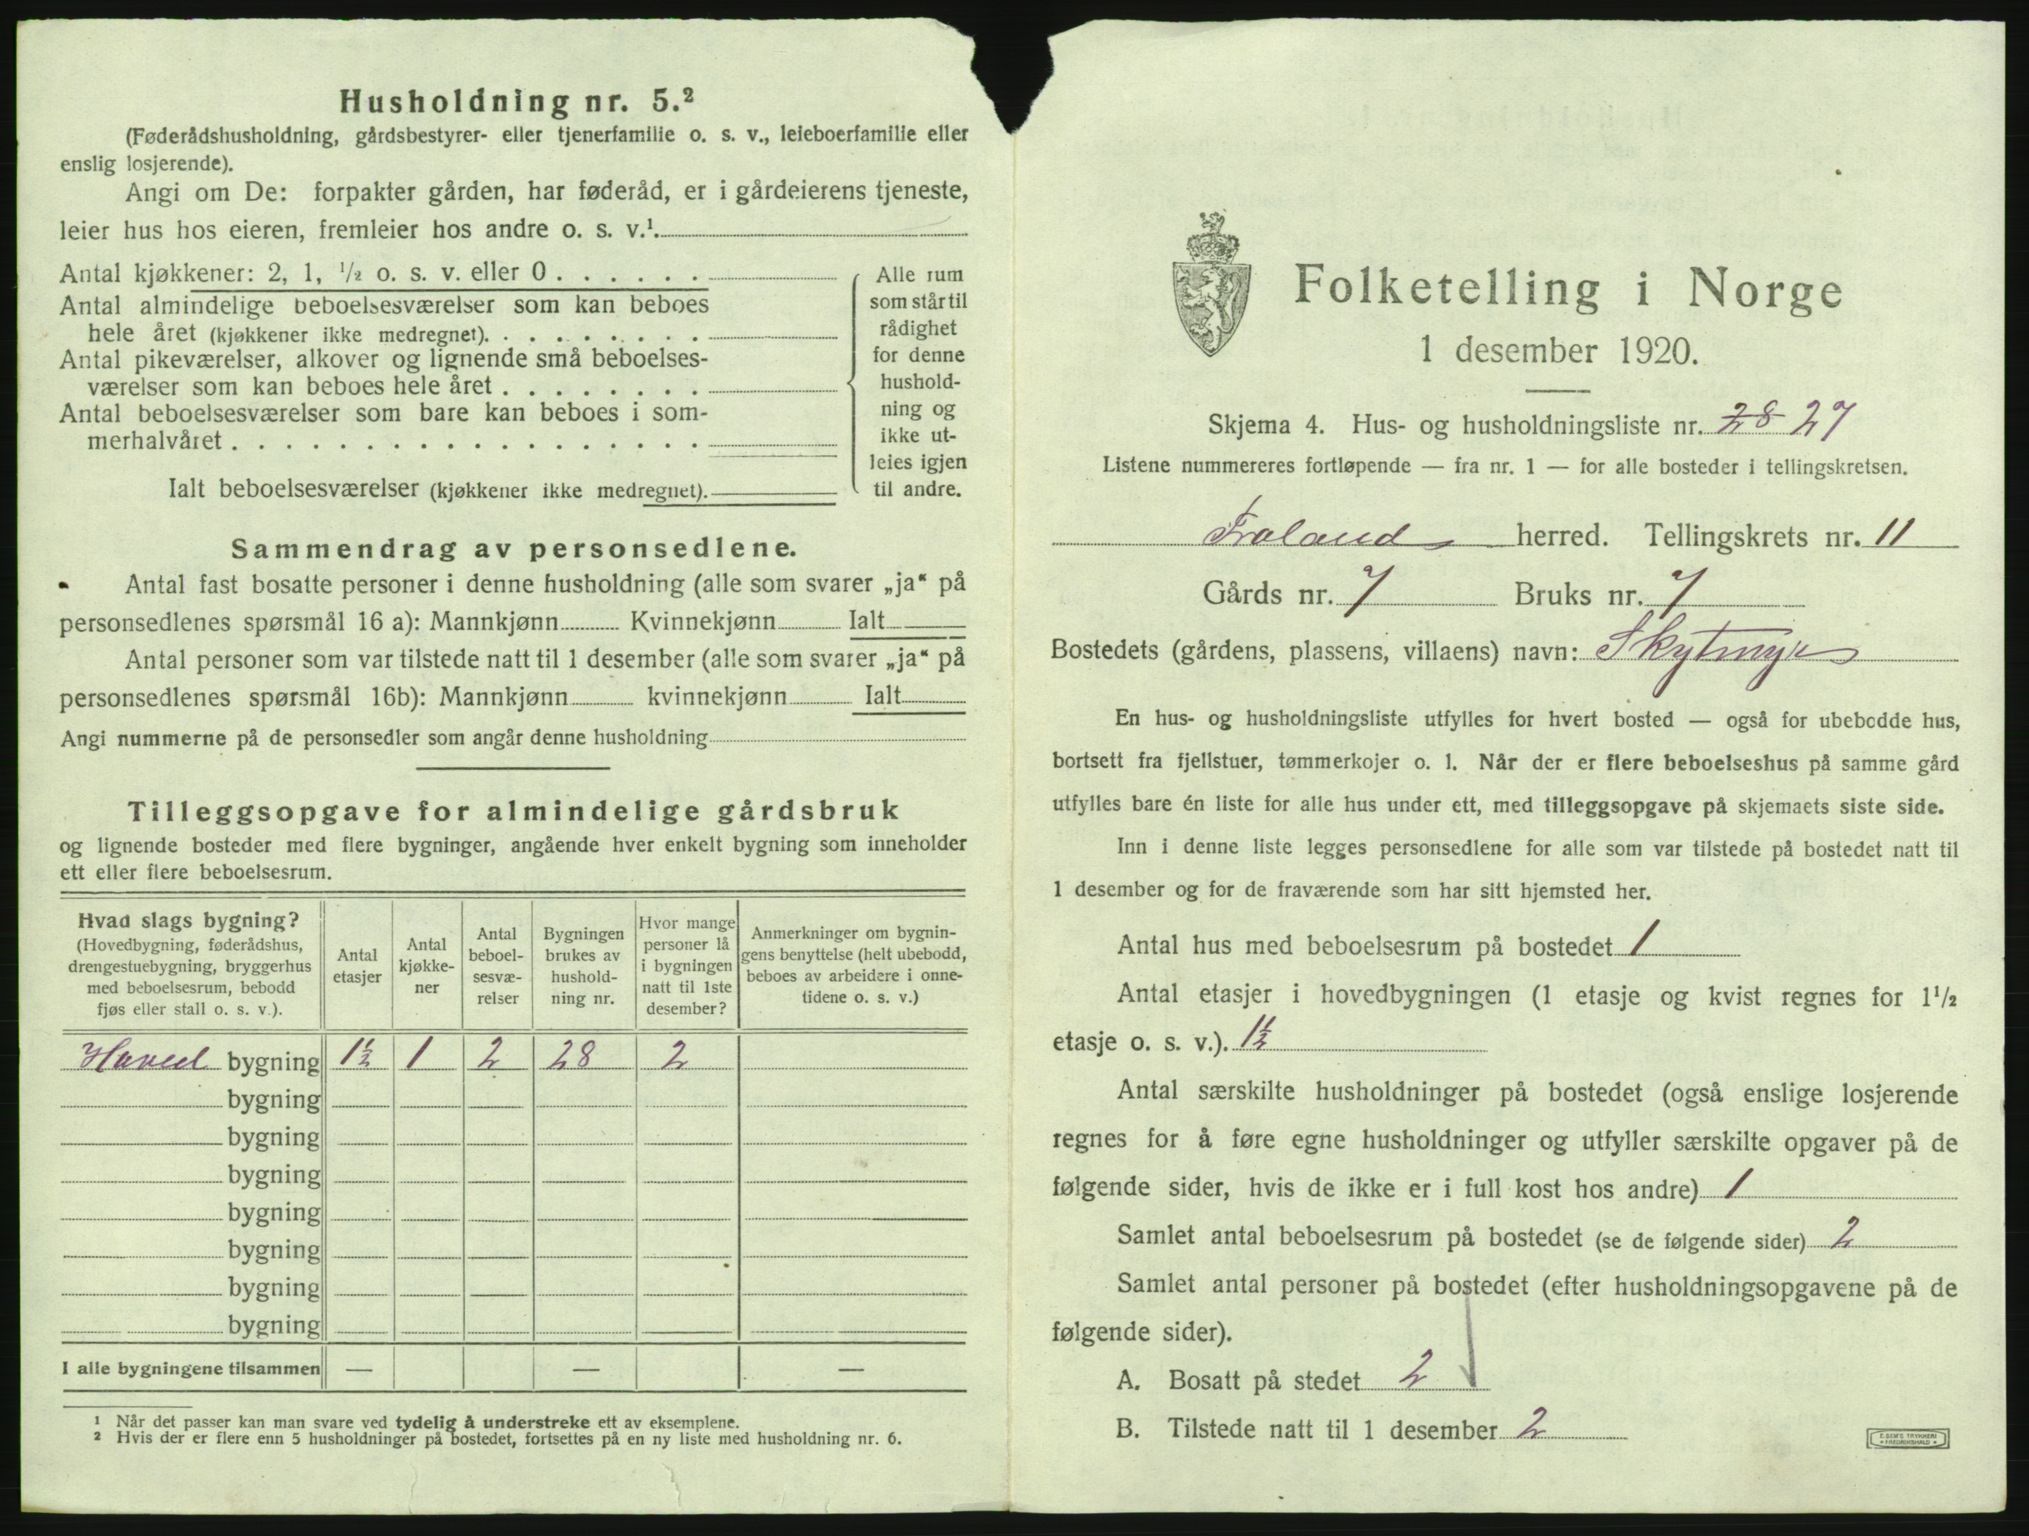 Husholdning nr. 5.²
(Føderådshusholdning, gårdsbestyrer- eller tjenerfamilie o. s. v., leieboerfamilie eller
enslig losjerende).
Angi om De: forpakter gården, har føderåd, er i gårdeierens tjeneste,
leier hus hos eieren, fremleier hos andre o. s. v.¹
Antal kjøkkener: 2, 1, ½ o. s. v. eller 0 . . . . . .
Antal almindelige beboelsesværelser som kan beboes
hele året (kjøkkener ikke medregnet). . . . . . . . .
Antal pikeværelser, alkover og lignende små beboelses-
værelser som kan beboes hele året . . . . . . . .
Antal beboelsesværelser som bare kan beboes i som-
merhalvåret . . . . . . . . . . . . . . . . . .
Ialt beboelsesværelser (kjøkkener ikke medregnet).
Alle rum
som står til
rådighet
for denne
hushold-
ning og
ikke ut-
leies igjen
til andre.
Sammendrag av personsedlene.
Antal fast bosatte personer i denne husholdning (alle som svarer „ja“ på
personsedlenes spørsmål 16 a): Mannkjønn Kvinnekjønn Ialt
Antal personer som var tilstede natt til 1 desember (alle som svarer „ja“ på
personsedlenes spørsmål 16b): Mannkjønn kvinnekjønn Ialt
Angi nummerne på de personsedler som angår denne husholdning
Tilleggsopgave for almindelige gårdsbruk
og lignende bosteder med flere bygninger, angående hver enkelt bygning som inneholder
ett eller flere beboelsesrum.
Hvad slags bygning?
(Hovedbygning, føderådshus,
drengestuebygning, bryggerhus
med beboelsesrum, bebodd
fjøs eller stall o. s. v.).
Antal
etasjer
Antal
kjøkke-
ner
Antal
beboel-
sesvæ-
relser
Bygningen
brukes av
hushold-
ning nr.
Hvor mange
personer lå
i bygningen
natt til 1ste
desember?
Anmerkninger om bygnin-
gens benyttelse (helt ubebodd,
beboes av arbeidere i onne-
tidene o. s. v.)
Hoved bygning 1½ 1 2 28 2
bygning
bygning
bygning
bygning
bygning
bygning
bygning
I alle bygningene tilsammen — — —
¹ Når det passer kan man svare ved tydelig å understreke ett av eksemplene.
² Hvis der er flere enn 5 husholdninger på bostedet, fortsettes på en ny liste med husholdning nr. 6.
Folketelling i Norge
1 desember 1920.
Skjema 4. Hus- og husholdningsliste nr. 28 27
Listene nummereres fortløpende — fra nr. 1 — for alle bosteder i tellingskretsen.
Froland herred. Tellingskrets nr. 11
Gårds nr. 7 Bruks nr. 7
Bostedets (gårdens, plassens, villaens) navn: Skytmyr
En hus- og husholdningsliste utfylles for hvert bosted — også for ubebodde hus,
bortsett fra fjellstuer, tømmerkojer o. l. Når der er flere beboelseshus på samme gård
utfylles bare én liste for alle hus under ett, med tilleggsopgave på skjemaets siste side.
Inn i denne liste legges personsedlene for alle som var tilstede på bostedet natt til
1 desember og for de fraværende som har sitt hjemsted her.
Antal hus med beboelsesrum på bostedet 1
Antal etasjer i hovedbygningen (1 etasje og kvist regnes for 1½
etasje o. s. v.). 1½
Antal særskilte husholdninger på bostedet (også enslige losjerende
regnes for å føre egne husholdninger og utfyller særskilte opgaver på de
følgende sider, hvis de ikke er i full kost hos andre) 1
Samlet antal beboelsesrum på bostedet (se de følgende sider) 2
Samlet antal personer på bostedet (efter husholdningsopgavene på de
følgende sider).
A. Bosatt på stedet 2
B. Tilstede natt til 1 desember 2
E. SEM'S TRYKKERI
FREDRIKSHALD